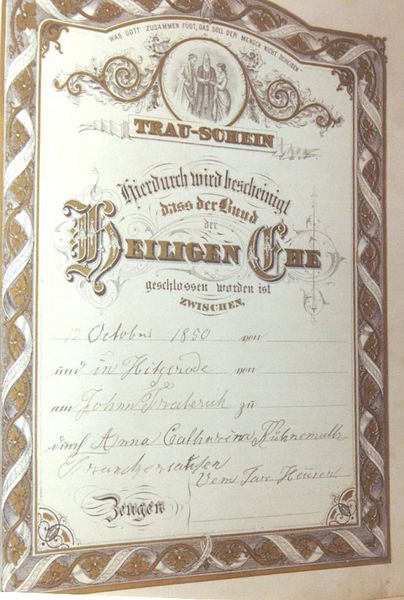 WAS GOTT ZUSAMMEN FÜGT, DAS SOLL DER MENSCH NICHT SCHEIDEN
TRAU-SCHEIN
Hierdurch wird bescheinigt
dass der Bund
der
HEILIGEN EHE
geschlossen worden ist
ZWISCHEN,
12 October 1850 von
und in Hitzerode von
am Johnn zu
durch Anna Catharina Kühnemuth
Vom
Zeugen